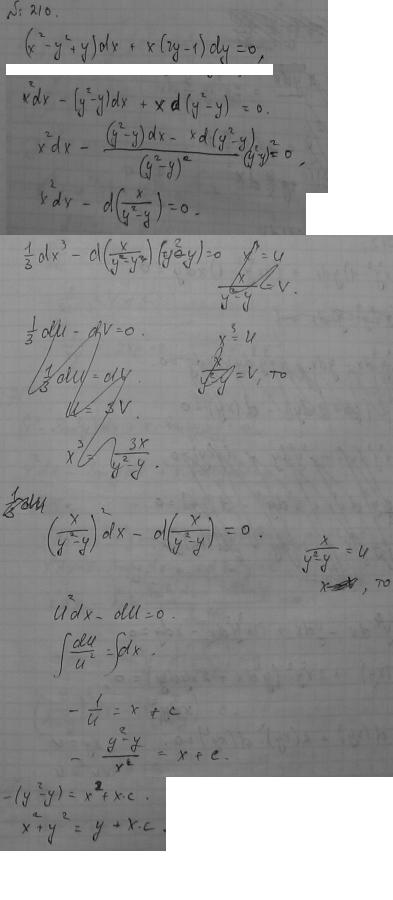 № 210.
(x² - y² + y)dx + x(2y-1)dy = 0,
x²dx - (y²-y)dx + x d(y²-y) = 0.
x²dx - ((y²-y)dx - x d(y²-y))/(y²-y)² (y²-y)² = 0,
x²dx - d(x/(y²-y)) = 0.
1/3 dx³ - d(x/(y²-y²)) (y²-y)² = 0 x³ = u
x/(y²-y) = v.
1/3 du - dv = 0. x³ = u
1/3 du = dv x/(y²-y) = v, то
u = 3v.
x³ = 3x/(y²-y).
1/3 du
(x/(y²-y))² dx - d(x/(y²-y)) = 0. x/(y²-y) = u
, то
u²dx - du = 0.
∫ du/u² = ∫ dx.
- 1/u = x + c
- (y²-y)/x = x + c.
-(y²-y) = x² + x·c.
x² + y² = y + x·c.